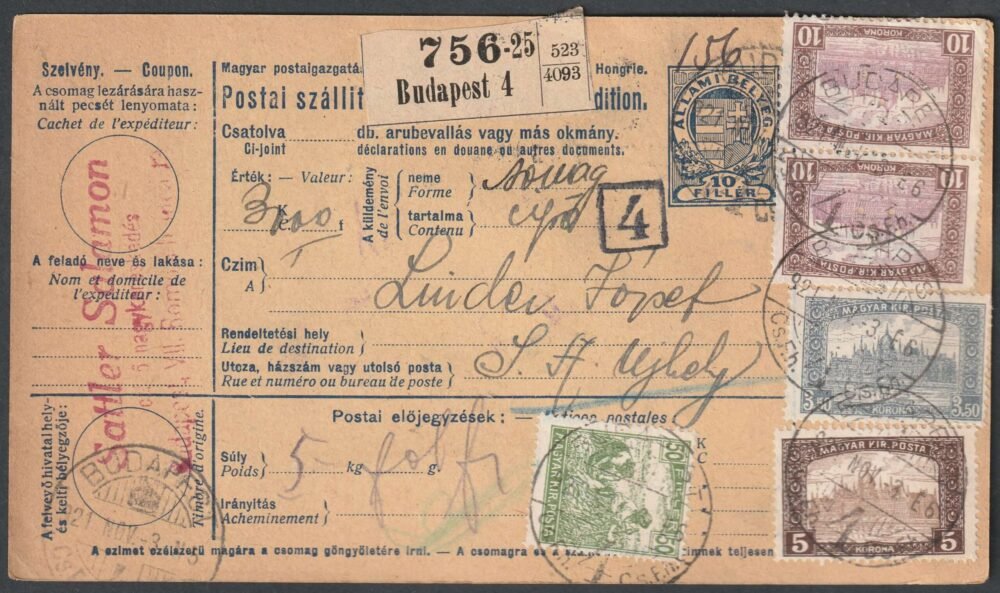 Szelvény. — Coupon.
A csomag lezárására hasz-
nált pecsét lenyomata:
Cachet de l'expéditeur:
A feladó neve és lakása:
Nom et domicile de
l'expéditeur:
Sattler Salamon
A felvevő hivatal hely-
és kelti bélyegzője:
Timbre d'origine.
BUDAPEST
921 NOV.-3.
Magyar postaigazgatá
Hongrie.
756-25
Budapest 4
523
4093
156
Postai szállít
dition.
Csatolva
Ci-joint
db. árubevallás vagy más okmány.
déclarations en douane ou autres documents.
Érték: — Valeur:
K
f
3000
A küldemény
de l'envoi
neme
Forme
tartalma
Contenu
4
ÁLLAMI BÉLYEG.
10
FILLÉR
Czim
A
Linder József
Rendeltetési hely
Lieu de destination
S. A. Ujhely
Utcza, házszám vagy utolsó posta
Rue et numéro ou bureau de poste
Postai előjegyzések:
postales
Súly
Poids
5
kg
g.
K
Irányítás
Acheminement
A czimet czélszerű magára a csomag göngyöletére irni. — A csomagra és a szá
nek teljesen
10 KORONA 10
MAGYAR KIR. POSTA
10 KORONA 10
MAGYAR KIR. POSTA
MAGYAR KIR. POSTA
3.50 KORONA 3.50
MAGYAR KIR. POSTA
5 KORONA 5
MAGYAR KIR. POSTA
50 FILLÉR 50
BUDAPEST